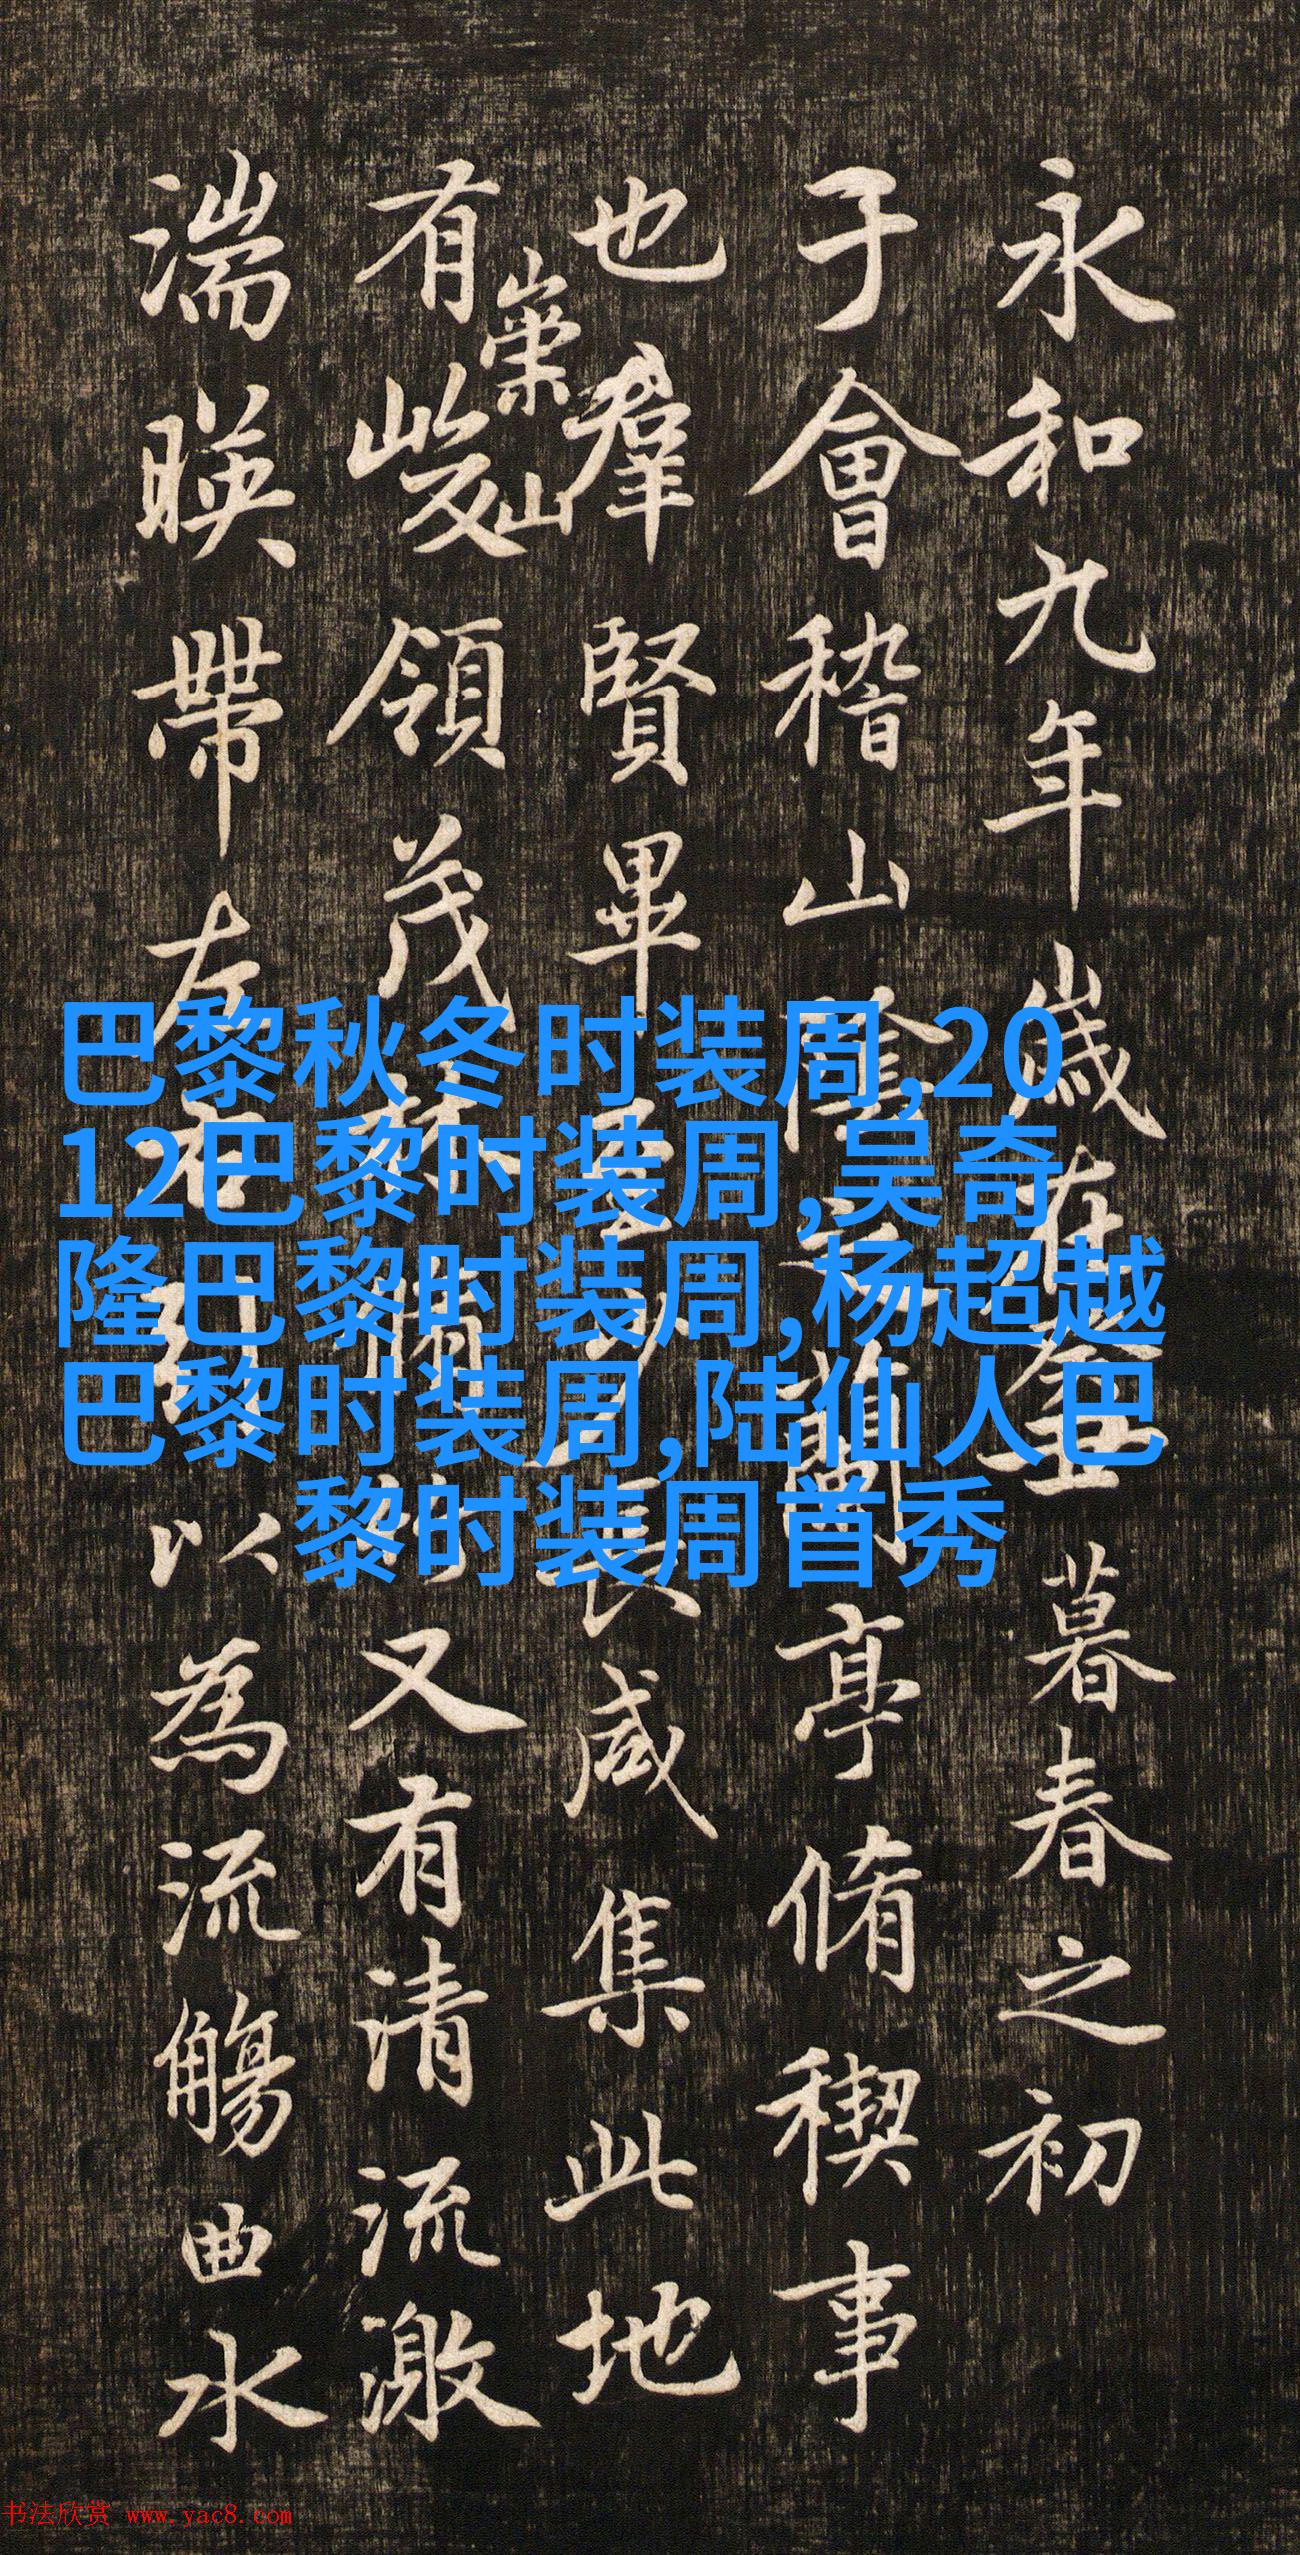 永和九年歲在癸丑暮春之初
于會稽山陰之蘭亭脩稧事
也羣賢畢至少長咸集此地
有崇山峻領茂林脩竹又有清流激
湍暎帶左右引以為流觴曲水
巴黎秋冬时装周,20
12巴黎时装周,吴奇
隆巴黎时装周,杨超越
巴黎时装周,陆仙人巴
黎时装周首秀
书法欣赏 www.yac8.com